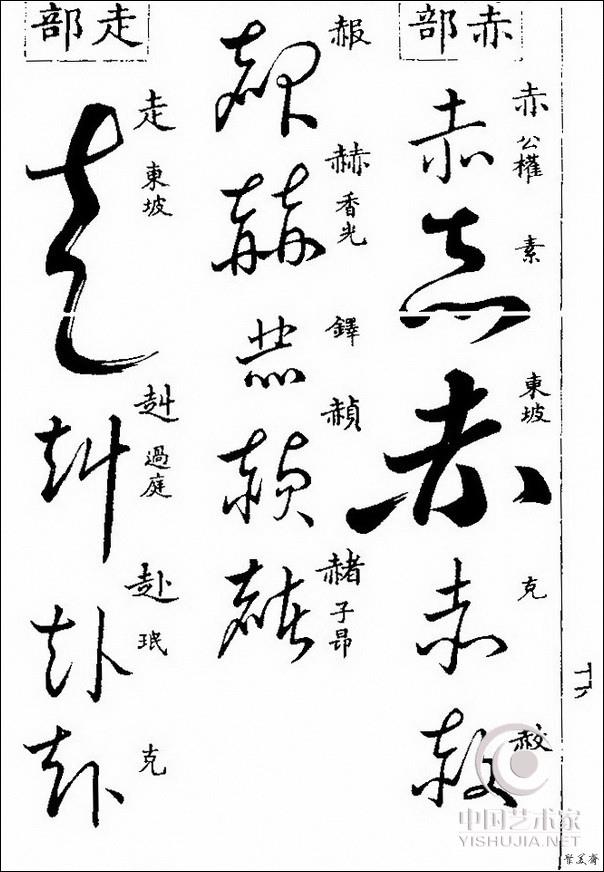 赤部
赤 公權
素
東坡
克
赦
赧
赫 香光
鐸
赬
赭 子昂
走部
走 東坡
赳 過庭
赴 珉
克
中国艺术家
YISHUJIA.NET